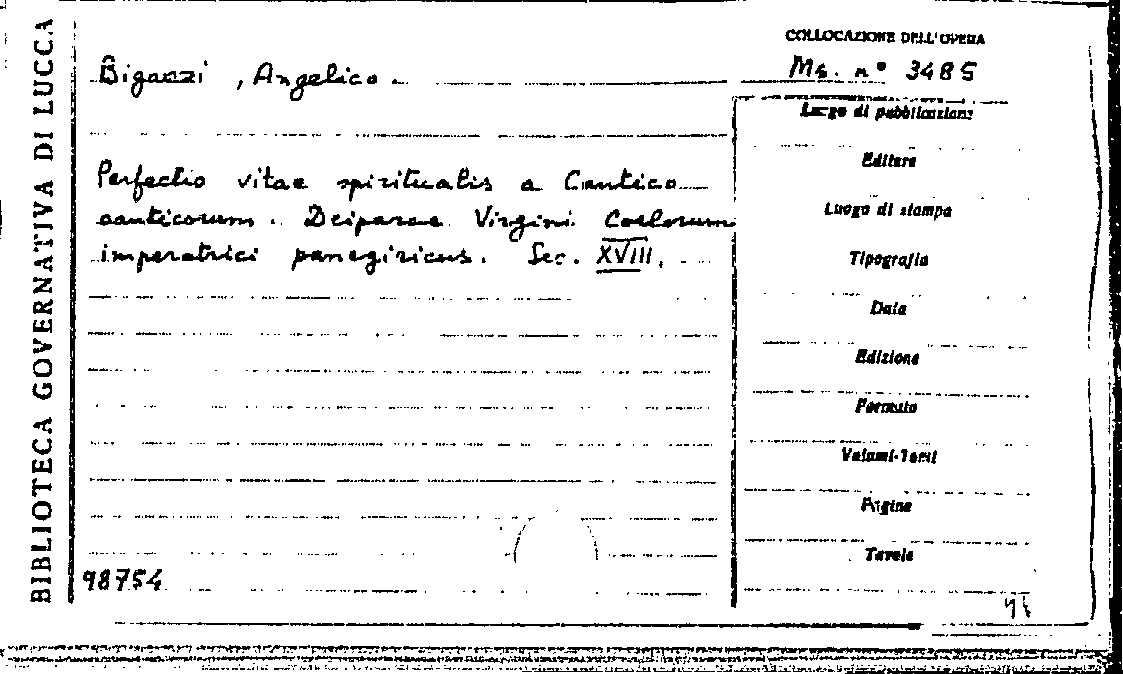 BIBLIOTECA GOVERNATIVA DI LUCCA
COLLOCAZIONE DELL'OPERA
Ms. n° 3485
Bigazzi, Angelico.
Perfectio vitae spiritualis a Cantico
canticorum. Deiparae Virgini Coelorum
imperatrici panegiricus. Sec. XVIII.
98754
Luogo di pubblicazione
Editore
Luogo di stampa
Tipografia
Data
Edizione
Formato
Volumi-Tomi
Pagine
Tavole